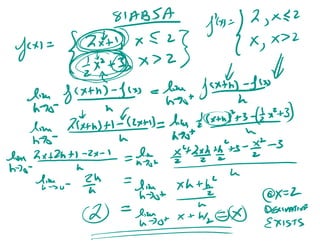 81ABSA
f(x) = { 2x+1 , x ≤ 2
½x²+3 , x > 2 }
f'(x) = { 2, x ≤ 2
x, x > 2
lim h→0⁻ f(x+h) - f(x) / h = lim h→0⁺ f(x+h) - f(x) / h
lim h→0⁻ 2(x+h)+1 - (2x+1) / h = lim h→0⁺ ½(x+h)²+3 - (½x²+3) / h
lim h→0⁻ 2x+2h+1-2x-1 / h = lim h→0⁺ x²/2 + 2xh/2 + h²/2 + 3 - x²/2 - 3 / h
lim h→0⁻ 2h / h = lim h→0⁺ xh + h²/2 / h
2 = lim h→0⁺ x + h/2 = x
@x=2
DERIVATIVE
EXISTS